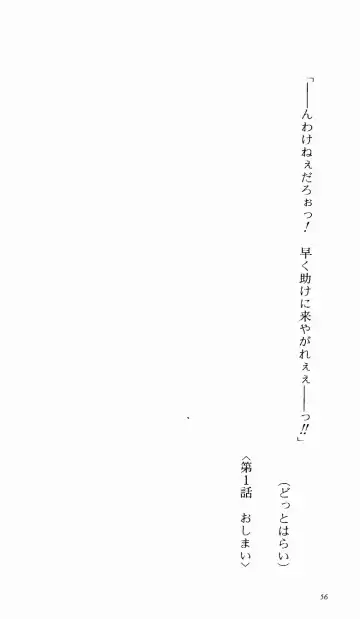 「――んわけねぇだろぉっ！　早く助けに来やがれぇぇ――っ!!」
（どっとはらい）
〈第１話　おしまい〉
56